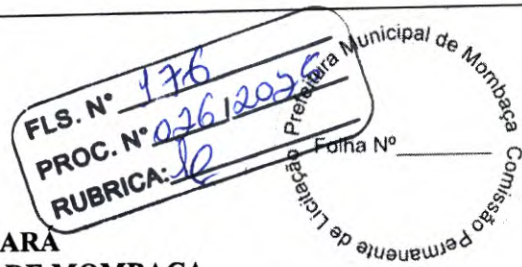 FLS. Nº 176
PROC. Nº 026/2025
RUBRICA:
Prefeitura Municipal de Mombaça
Comissão Permanente de Licitação
Folha Nº
ARÁ
DE MOMBAÇA